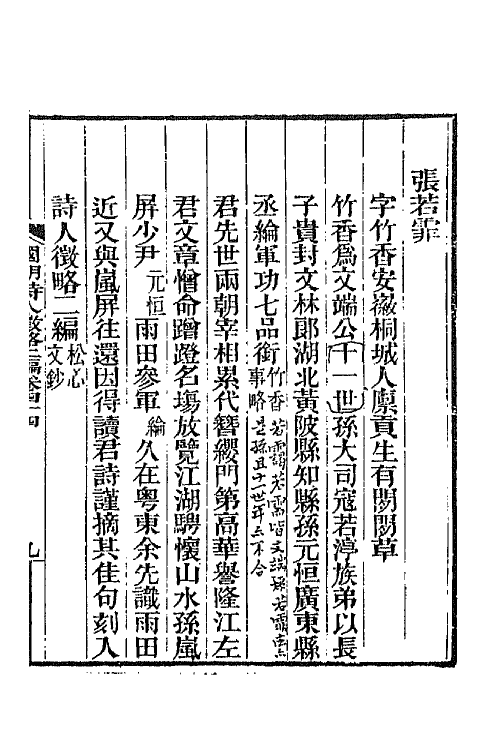 張若霏
字竹香安徽桐城人廩貢生有閒閒草
竹香爲文端公十一世孫大司寇若渟族弟以長
子貴封文林郎湖北黃陂縣知縣孫元恒廣東縣
丞綸軍功七品銜竹香事略
君先世兩朝宰相累代簪纓門第高華譽隆江左
君文章憎命蹭蹬名場放覽江湖騁懷山水孫嵐
屏少尹元恒雨田參軍綸久在粵東余先識雨田
近又與嵐屏往還因得讀君詩謹摘其佳句刻入
詩人徵略二編松心文鈔
國朝詩人徵略二編卷四十四
九